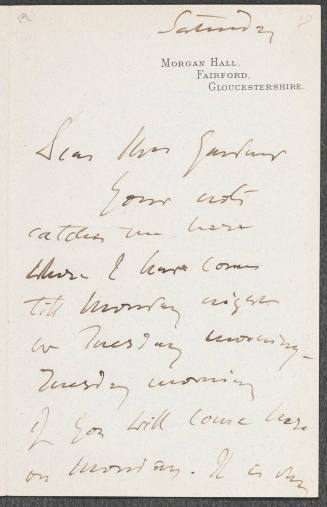 19
Saturday
MORGAN HALL,
FAIRFORD,
GLOUCESTERSHIRE.
Dear Mrs Gardner
Your note
catches me here
where I have come
till Monday night
or Tuesday morning -
Tuesday morning
if you will come here
on Monday. It is